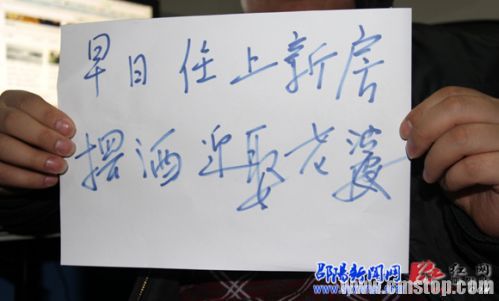 早日住上新房
摆酒迎娶老婆
邵阳新闻网
红网
www.cmstop.com